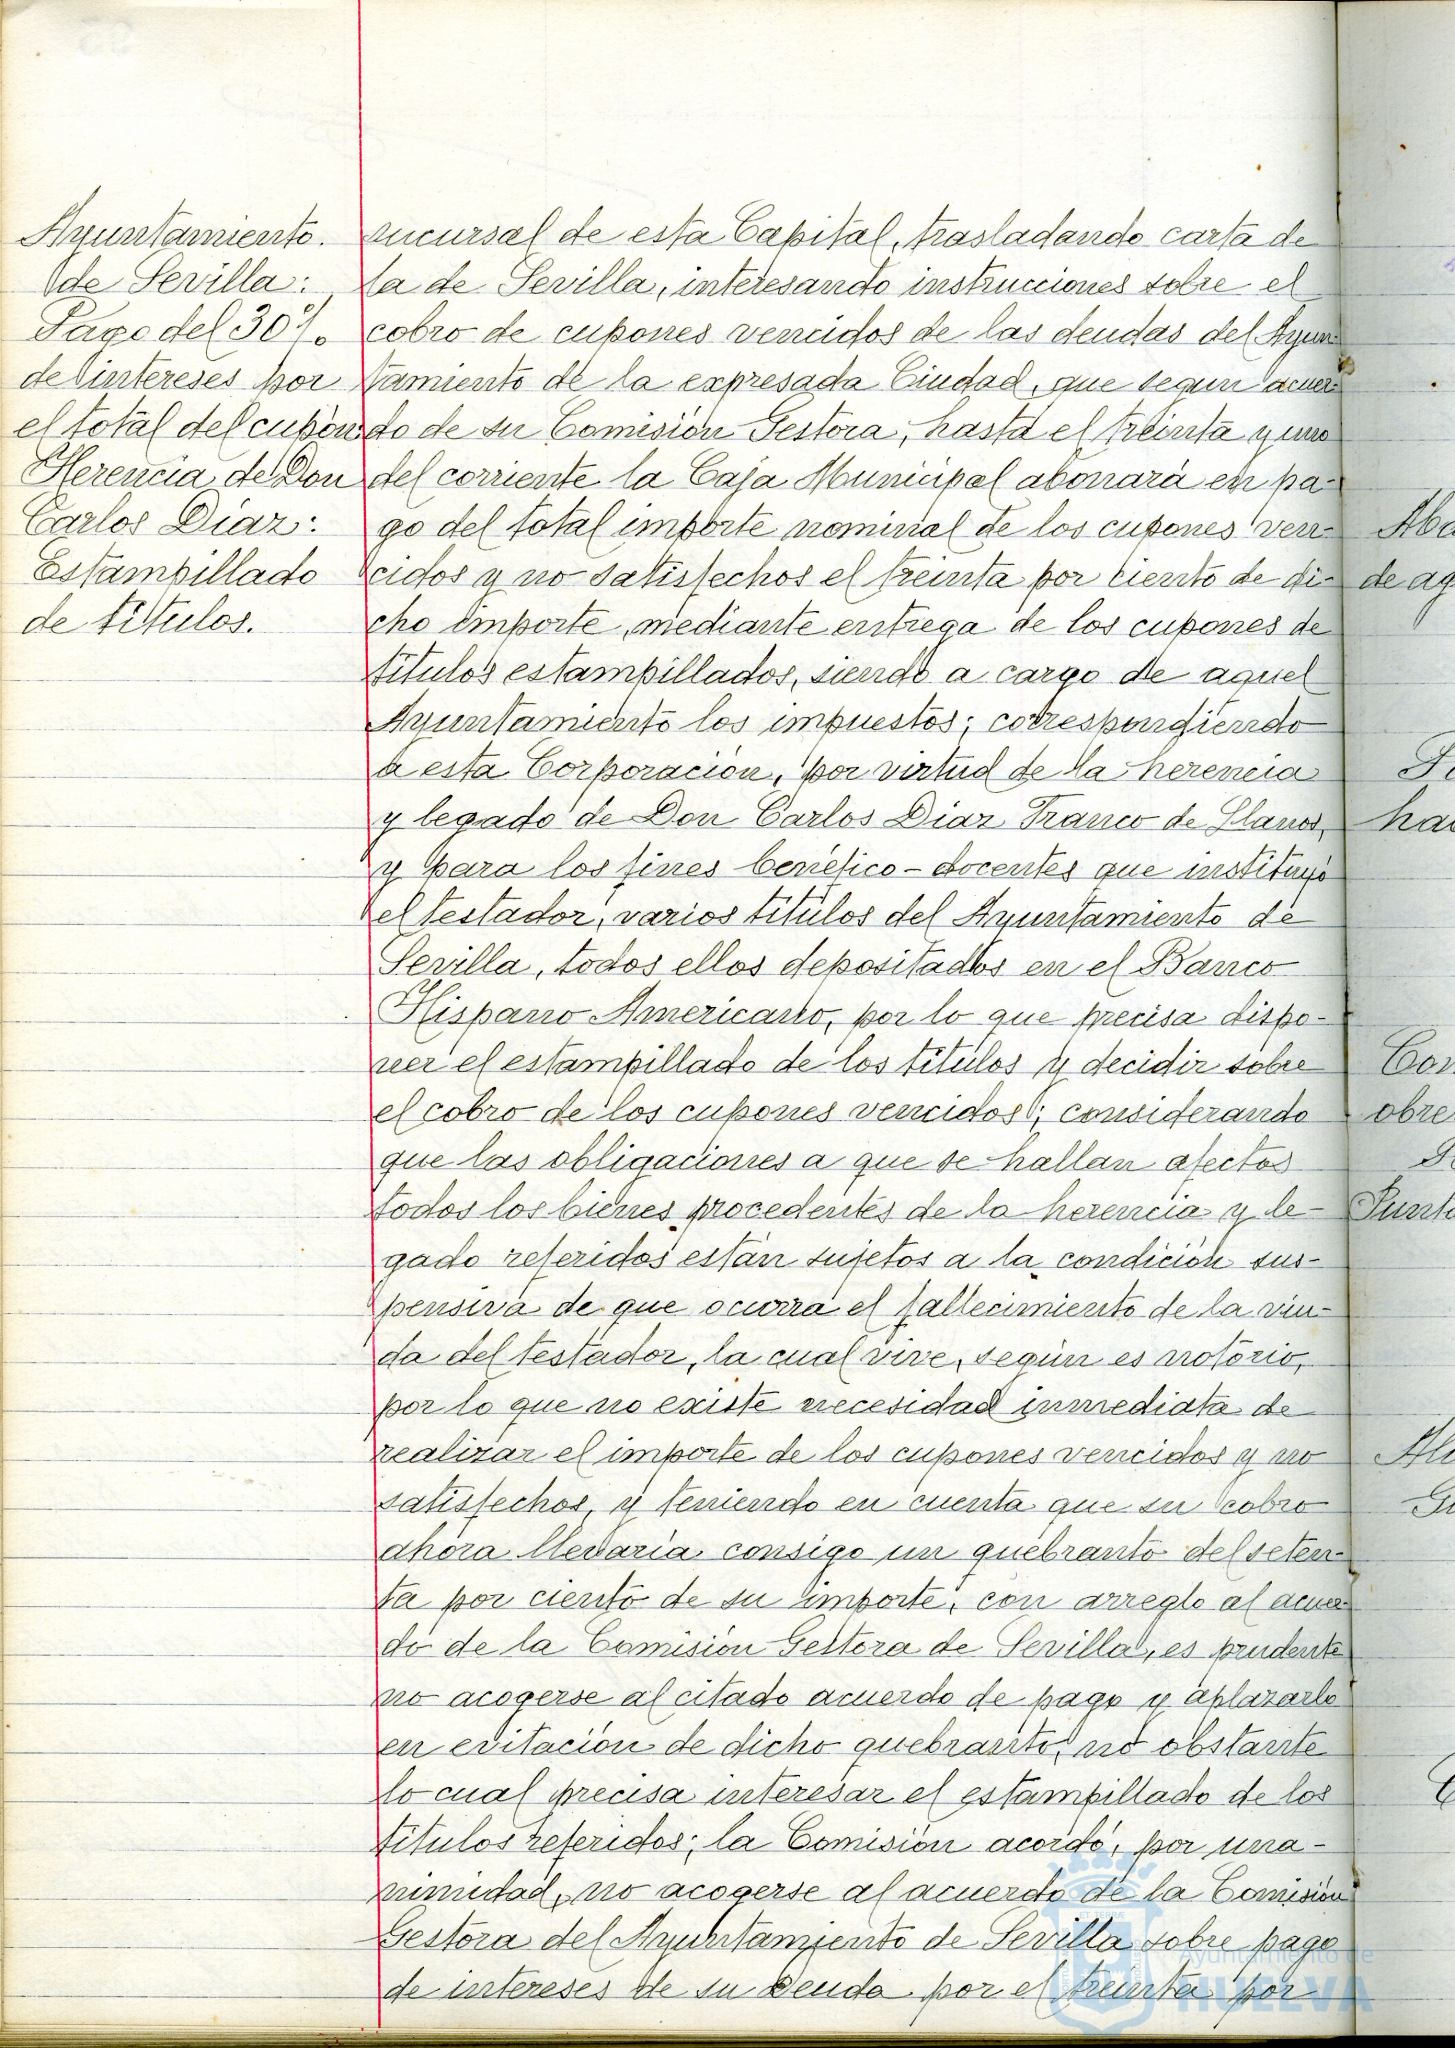 Ayuntamiento.
de Sevilla:
Pago del 30%
de intereses por
el total del cupón
Herencia de Don
Carlos Diaz:
Estampillado
de titulos.
sucursal de esta Capital, trasladando carta de
la de Sevilla, interesando instrucciones sobre el
cobro de cupones vencidos de las deudas del Ayun-
tamiento de la expresada Ciudad, que segun acuer-
do de su Comisión Gestora, hasta el treinta y uno
del corriente la Caja Municipal abonará en pa-
go del total importe nominal de los cupones ven-
cidos y no satisfechos el treinta por ciento de di-
cho importe, mediante entrega de los cupones de
titulos estampillados, siendo a cargo de aquel
Ayuntamiento los impuestos; correspondiendo
a esta Corporación, por virtud de la herencia
y legado de Don Carlos Diaz Franco de Llanos,
y para los fines benéfico-docentes que instituyó
el testador, varios titulos del Ayuntamiento de
Sevilla, todos ellos depositados en el Banco
Hispano Americano, por lo que precisa dispo-
ner el estampillado de los titulos y decidir sobre
el cobro de los cupones vencidos; considerando
que las obligaciones a que se hallan afectos
todos los bienes procedentes de la herencia y le-
gado referidos están sujetos a la condición sus-
pensiva de que ocurra el fallecimiento de la viu-
da del testador, la cual vive, según es notorio,
por lo que no existe necesidad inmediata de
realizar el importe de los cupones vencidos y no
satisfechos, y teniendo en cuenta que su cobro
ahora llevaria consigo un quebranto del seten-
ta por ciento de su importe, con arreglo al acuer-
do de la Comisión Gestora de Sevilla, es prudente
no acogerse al citado acuerdo de pago y aplazarlo
en evitación de dicho quebranto, no obstante
lo cual precisa interesar el estampillado de los
titulos referidos; la Comisión acordó, por una-
nimidad, no acogerse al acuerdo de la Comisión
Gestora del Ayuntamiento de Sevilla sobre pago
de intereses de su Deuda por el treinta por
Ayuntamiento de
HUELVA
de ag
Con
obre